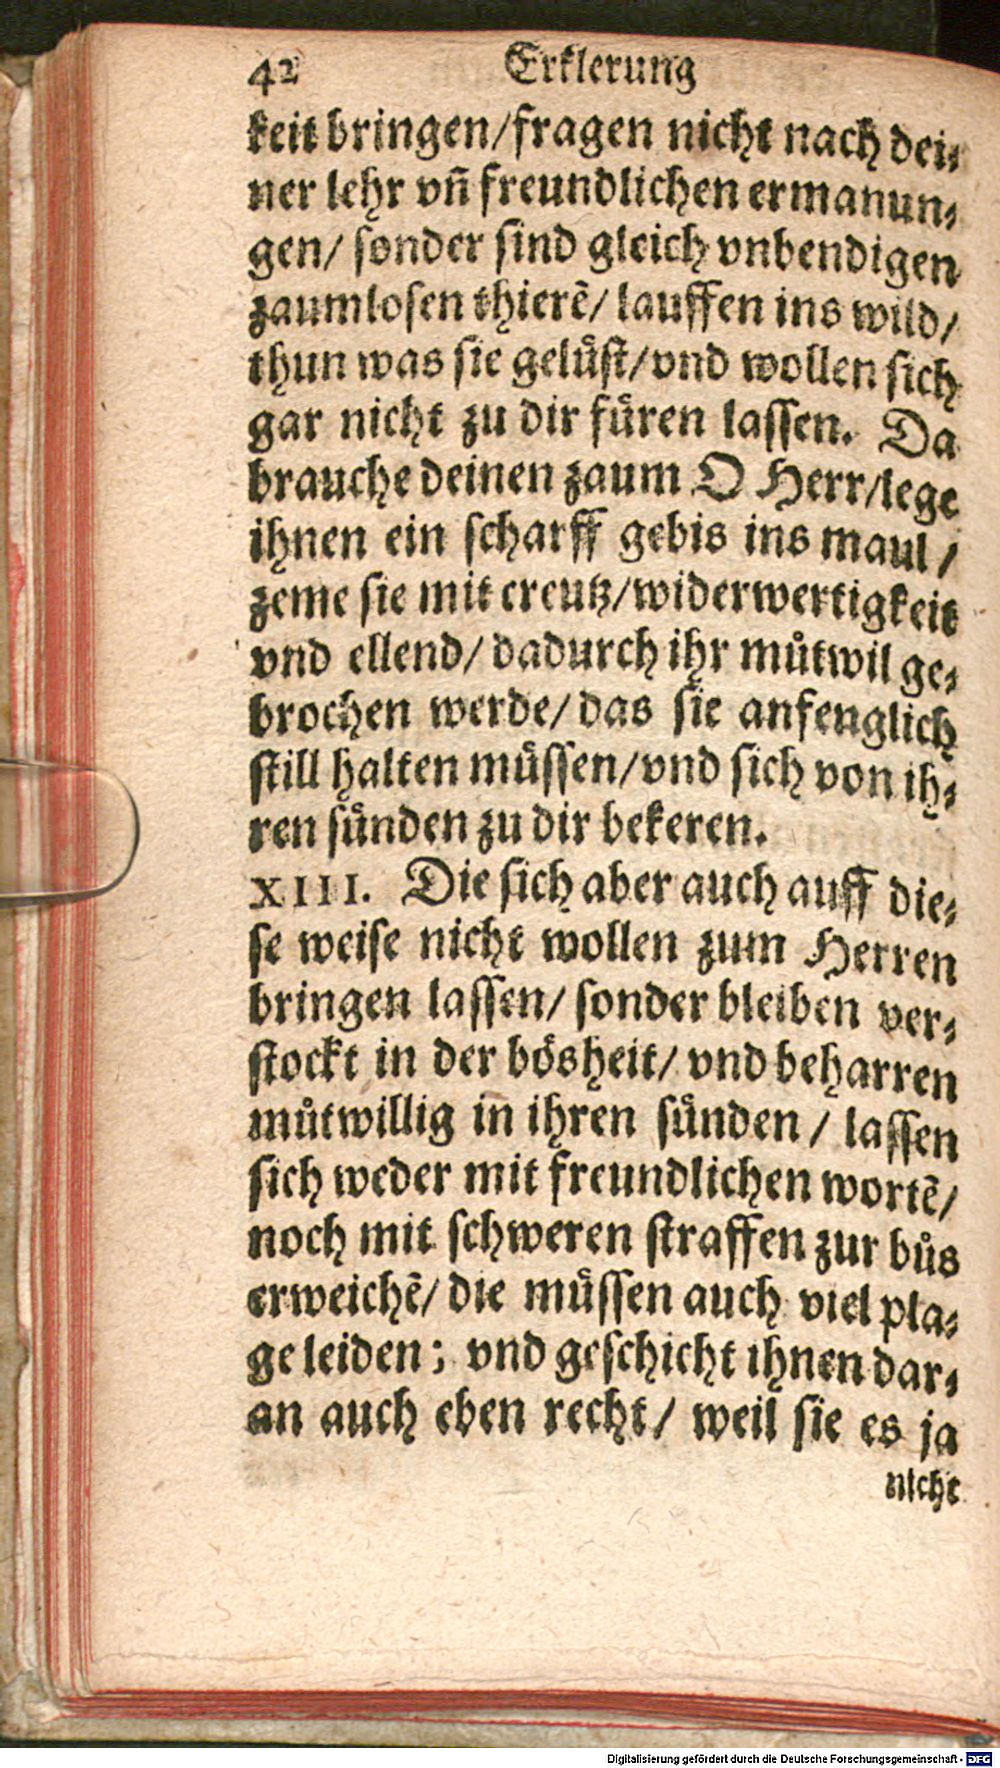 42 Erklerung
keit bringen/fragen nicht nach dei⸗
ner lehr vñ freundlichen ermanun⸗
gen/ sonder sind gleich vnbendigen
zaumlosen thierẽ/ lauffen ins wild/
thun was sie gelüst/vnd wollen sich
gar nicht zu dir füren lassen. Da
brauche deinen zaum O Herr/lege
ihnen ein scharff gebis ins maul /
zeme sie mit creutz/widerwertigkeit
vnd ellend/ dadurch ihr můtwil ge⸗
brochen werde/ das sie anfenglich
still halten müssen/vnd sich von ih⸗
ren sünden zu dir bekeren.
XIII. Die sich aber auch auff die⸗
se weise nicht wollen zum Herren
bringen lassen/ sonder bleiben ver⸗
stockt in der bösheit/ vnd beharren
můtwillig in ihren sünden / lassen
sich weder mit freundlichen wortẽ/
noch mit schweren straffen zur bůs
erweichẽ/ die müssen auch viel pla⸗
ge leiden; vnd geschicht ihnen dar⸗
an auch eben recht/ weil sie es ja
nicht
Digitalisierung gefördert durch die Deutsche Forschungsgemeinschaft - DFG